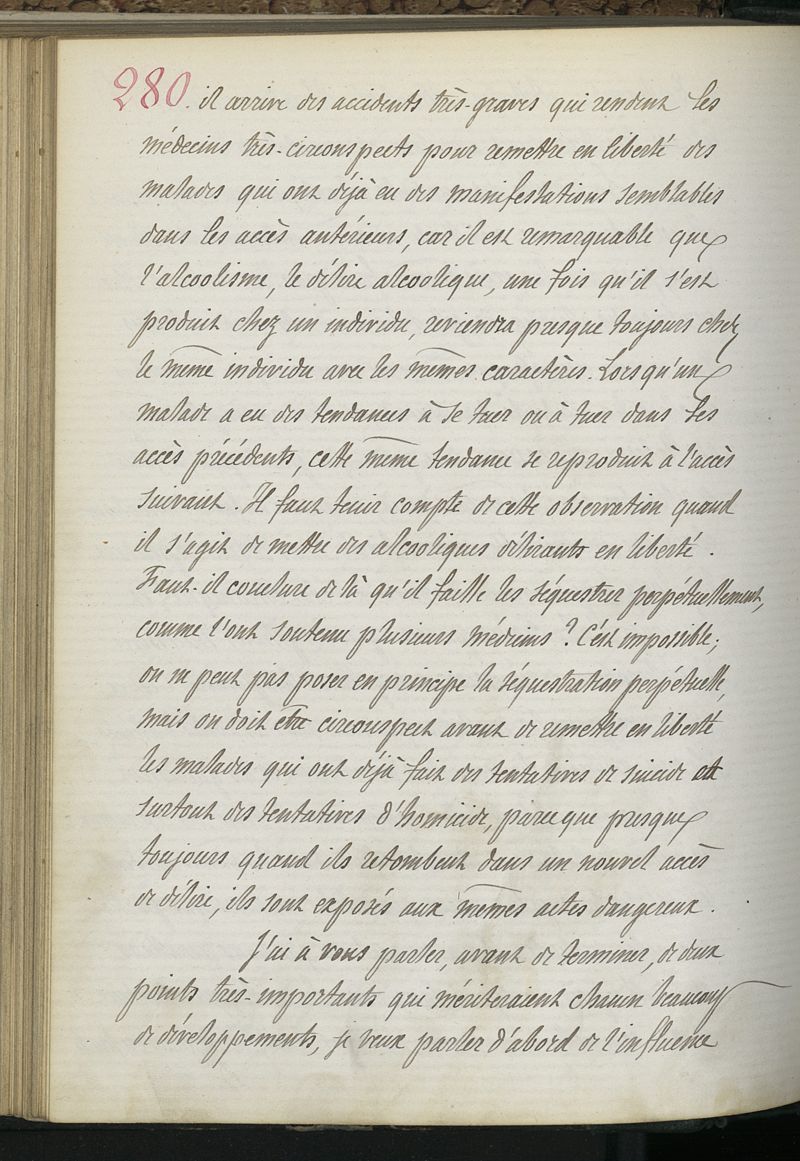 280. il arrive des accidents très-graves qui rendent les
médecins très-circonspects pour remettre en liberté des
malades qui ont déjà eu des manifestations semblables
dans les accès antérieurs, car il est remarquable que
l'alcoolisme, le délire alcoolique, une fois qu'il s'est
produit chez un individu, reviendra presque toujours chez
le même individu avec les mêmes caractères. Lorsqu'un
malade a eu des tendances à se tuer ou à tuer dans les
accès précédents, cette même tendance se reproduit à l'accès
suivant. Il faut tenir compte de cette observation quand
il s'agit de mettre des alcooliques délirants en liberté.
Faut-il conclure de là qu'il faille les séquestrer perpétuellement,
comme l'ont soutenu plusieurs médecins ? C'est impossible ;
on ne peut pas poser en principe la séquestration perpétuelle,
mais on doit être circonspect avant de remettre en liberté
les malades qui ont déjà fait des tentatives de suicide et
surtout des tentatives d'homicide, parce que presque
toujours quand ils retombent dans un nouvel accès
de délire, ils sont exposés aux mêmes actes dangereux.
J'ai à vous parler, avant de terminer, de deux
points très-importants qui mériteraient chacun beaucoup
de développements, je veux parler d'abord de l'influence